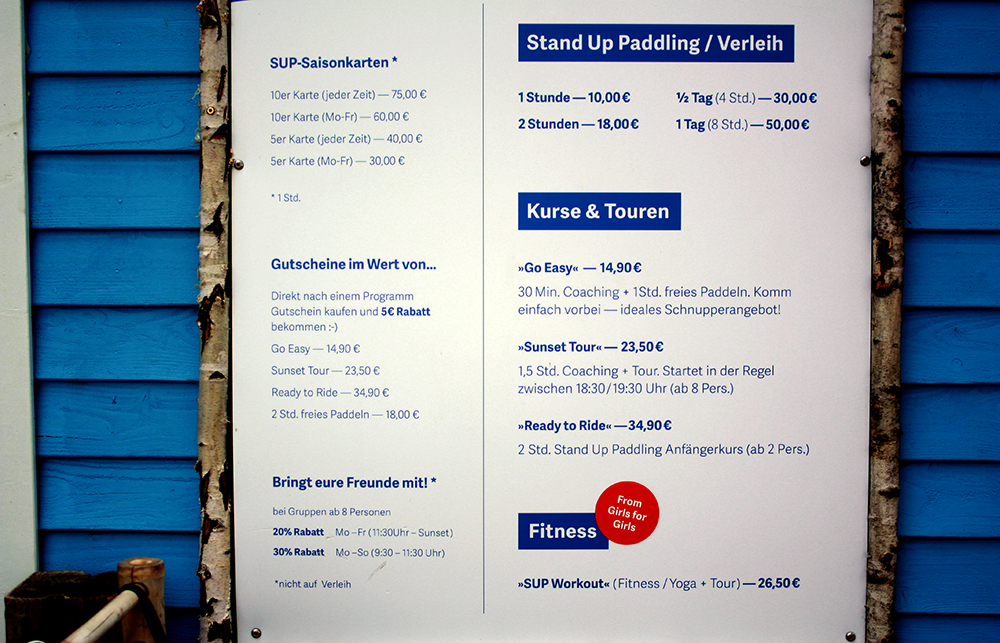 SUP-Saisonkarten *
10er Karte (jeder Zeit) — 75,00 €
10er Karte (Mo-Fr) — 60,00 €
5er Karte (jeder Zeit) — 40,00 €
5er Karte (Mo-Fr) — 30,00 €
* 1 Std.
Gutscheine im Wert von...
Direkt nach einem Programm
Gutschein kaufen und 5€ Rabatt
bekommen :-)
Go Easy — 14,90 €
Sunset Tour — 23,50 €
Ready to Ride — 34,90 €
2 Std. freies Paddeln — 18,00 €
Bringt eure Freunde mit! *
bei Gruppen ab 8 Personen
20% Rabatt Mo – Fr (11:30Uhr – Sunset)
30% Rabatt Mo – So (9:30 – 11:30 Uhr)
*nicht auf Verleih
Stand Up Paddling / Verleih
1 Stunde — 10,00 € ½ Tag (4 Std.) — 30,00 €
2 Stunden — 18,00 € 1 Tag (8 Std.) — 50,00 €
Kurse & Touren
»Go Easy« — 14,90 €
30 Min. Coaching + 1 Std. freies Paddeln. Komm
einfach vorbei — ideales Schnupperangebot!
»Sunset Tour« — 23,50 €
1,5 Std. Coaching + Tour. Startet in der Regel
zwischen 18:30 / 19:30 Uhr (ab 8 Pers.)
»Ready to Ride« — 34,90 €
2 Std. Stand Up Paddling Anfängerkurs (ab 2 Pers.)
Fitness
From
Girls for
Girls
»SUP Workout« (Fitness / Yoga + Tour) — 26,50 €